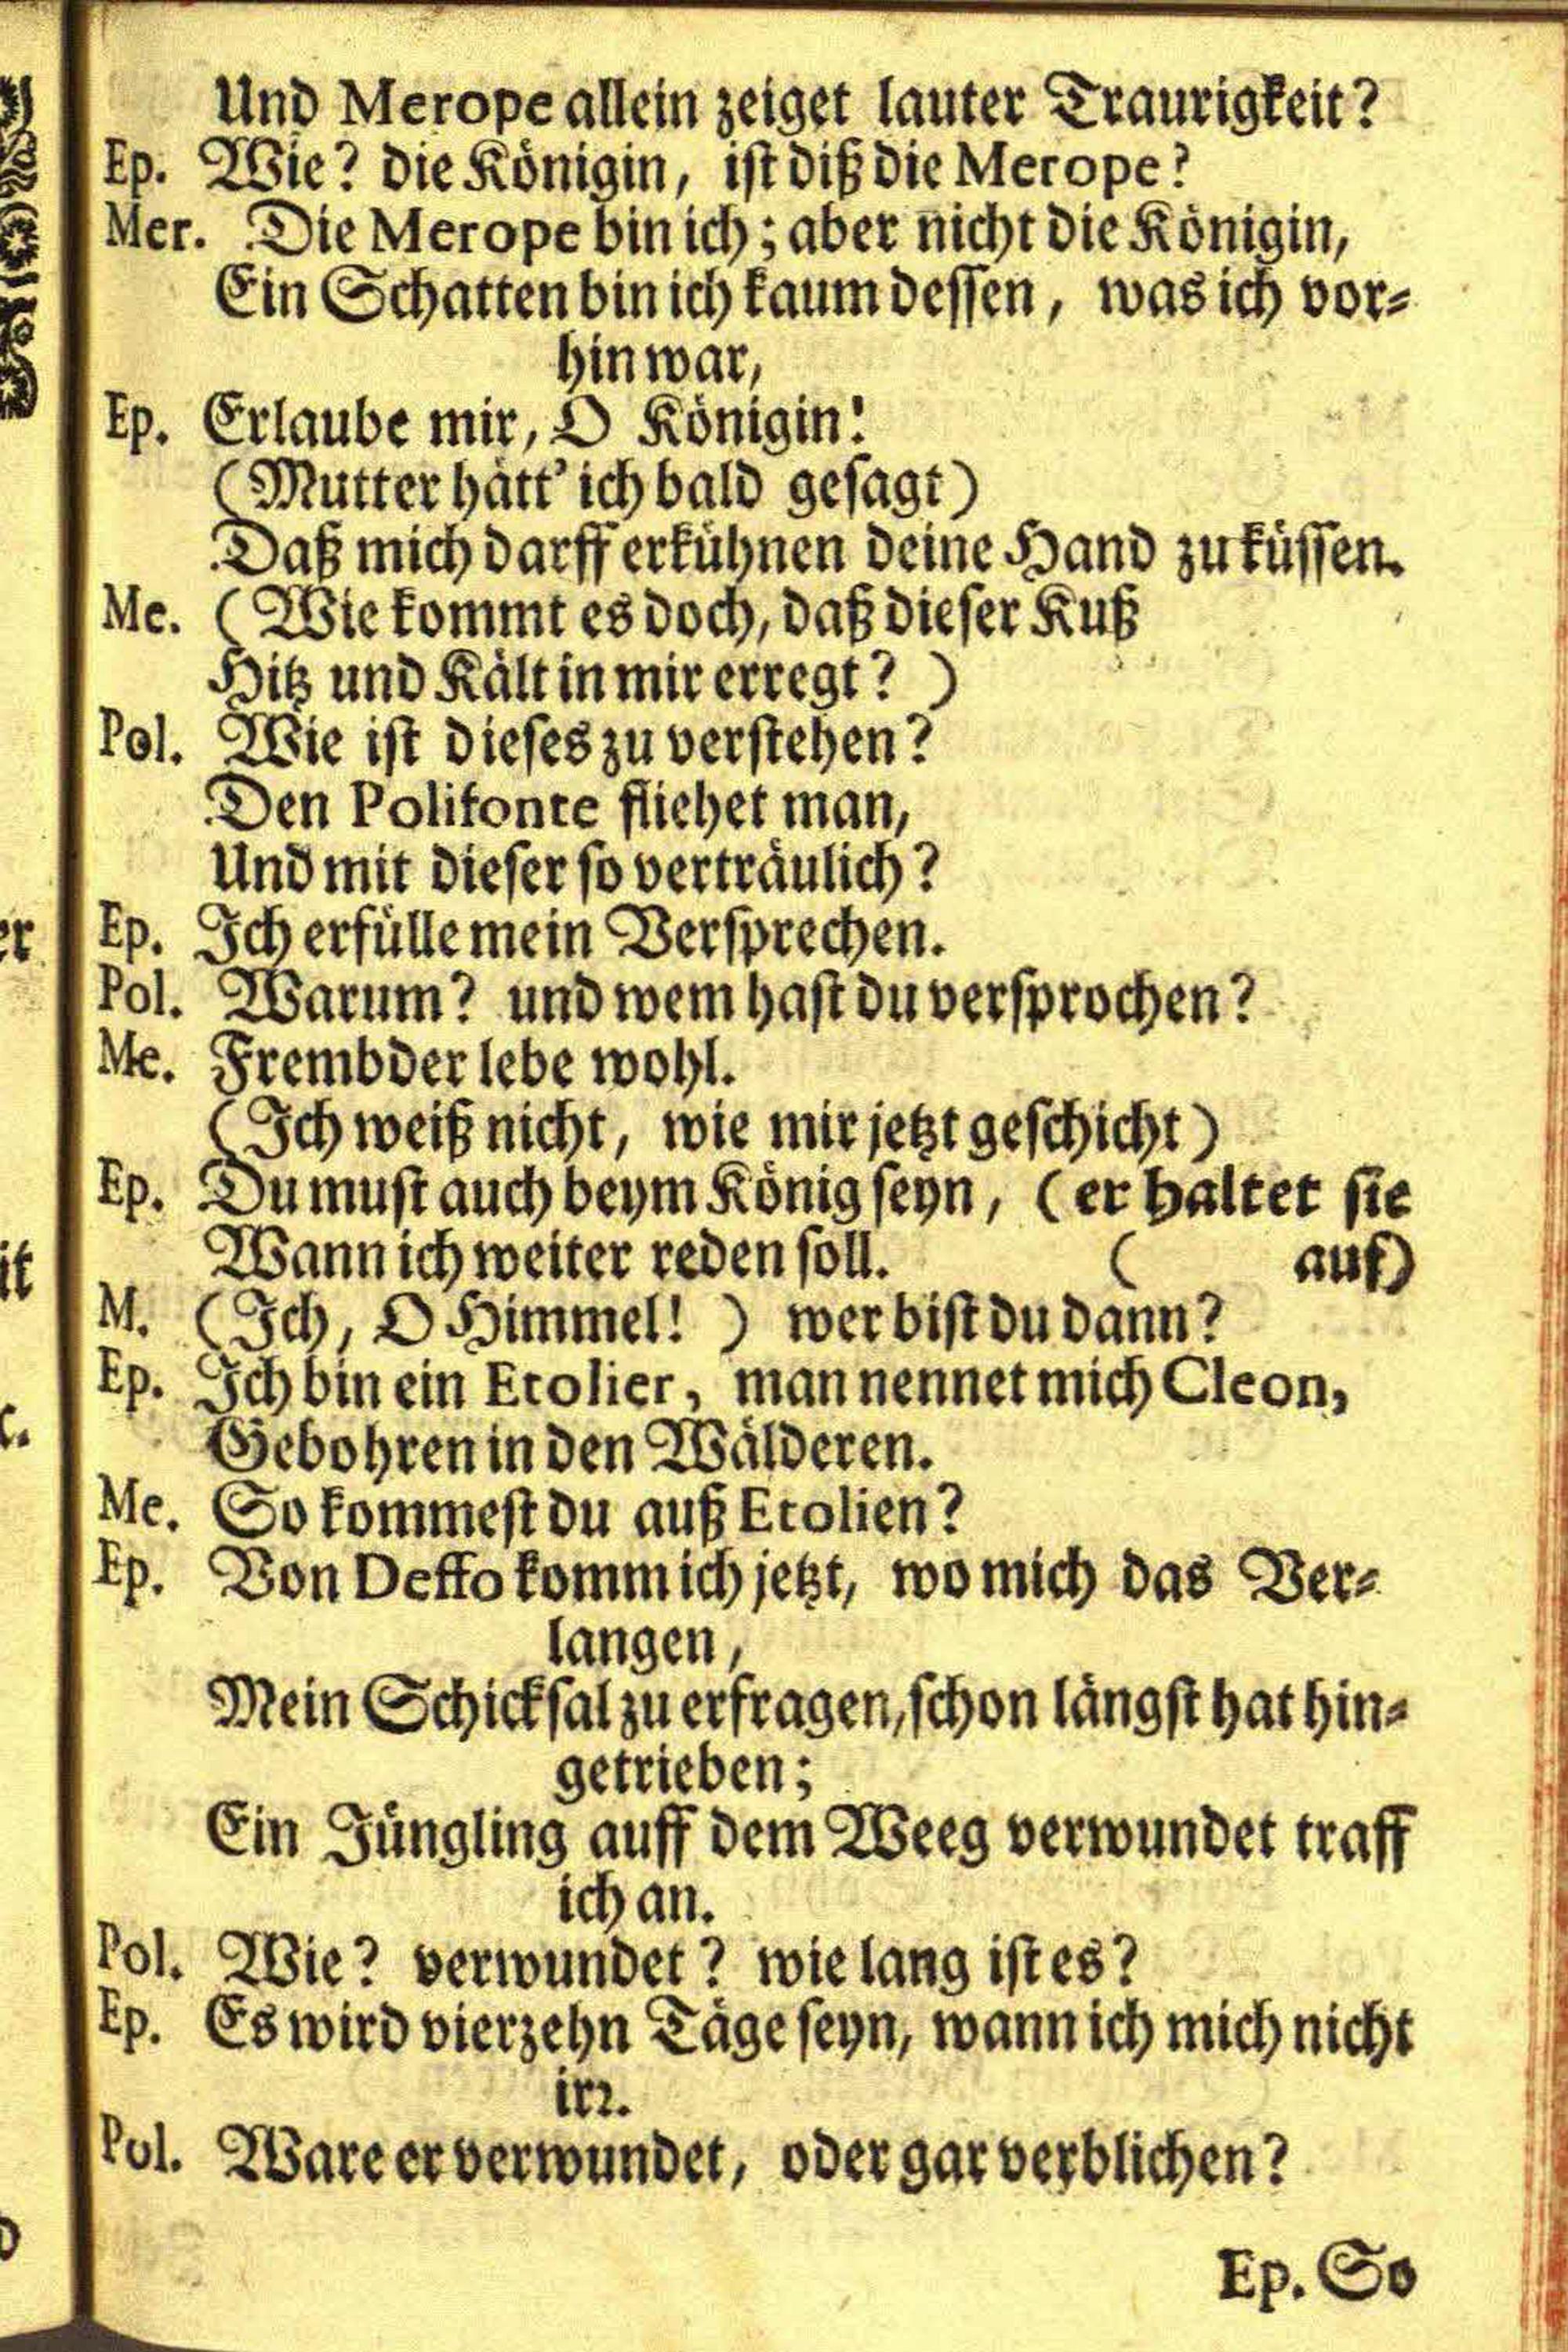 Und Merope allein zeiget lauter Traurigkeit?
Ep. Wie? die Königin, ist diß die Merope?
Mer. Die Merope bin ich; aber nicht die Königin,
Ein Schatten bin ich kaum dessen, was ich vor-
hin war,
Ep. Erlaube mir, O Königin!
(Mutter hätt' ich bald gesagt)
Daß mich darff erkühnen deine Hand zu küssen.
Me. (Wie kommt es doch, daß dieser Kuß
Hitz und Kält in mir erregt?)
Pol. Wie ist dieses zu verstehen?
Den Polifonte fliehet man,
Und mit dieser so verträulich?
Ep. Ich erfülle mein Versprechen.
Pol. Warum? und wem hast du versprochen?
Me. Frembder lebe wohl.
(Ich weiß nicht, wie mir jetzt geschicht)
Ep. Du must auch beym König seyn, (er haltet sie
Wann ich weiter reden soll. ( auf)
M. (Ich, O Himmel!) wer bist du dann?
Ep. Ich bin ein Etolier, man nennet mich Cleon,
Gebohren in den Wälderen.
Me. So kommest du auß Etolien?
Ep. Von Deffo komm ich jetzt, wo mich das Ver-
langen,
Mein Schicksal zu erfragen, schon längst hat hin-
getrieben;
Ein Jüngling auff dem Weeg verwundet traff
ich an.
Pol. Wie? verwundet? wie lang ist es?
Ep. Es wird vierzehn Täge seyn, wann ich mich nicht
irr.
Pol. Ware er verwundet, oder gar verblichen?
Ep. So